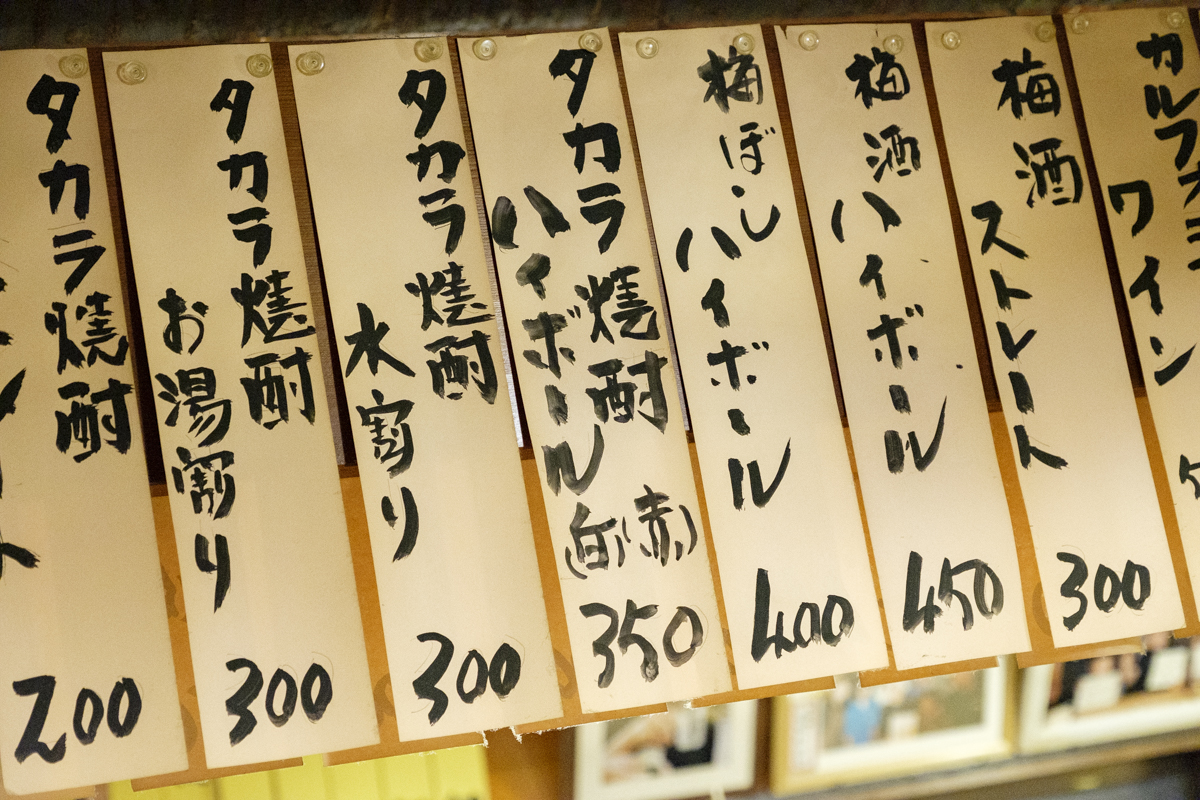 ワイン
梅酒
ストレート
300
梅酒
ハイボール
450
梅ぼし
ハイボール
400
タカラ焼酎
ハイボール
(赤)
(白)
350
タカラ焼酎
水割り
300
タカラ焼酎
お湯割り
300
タカラ焼酎
200